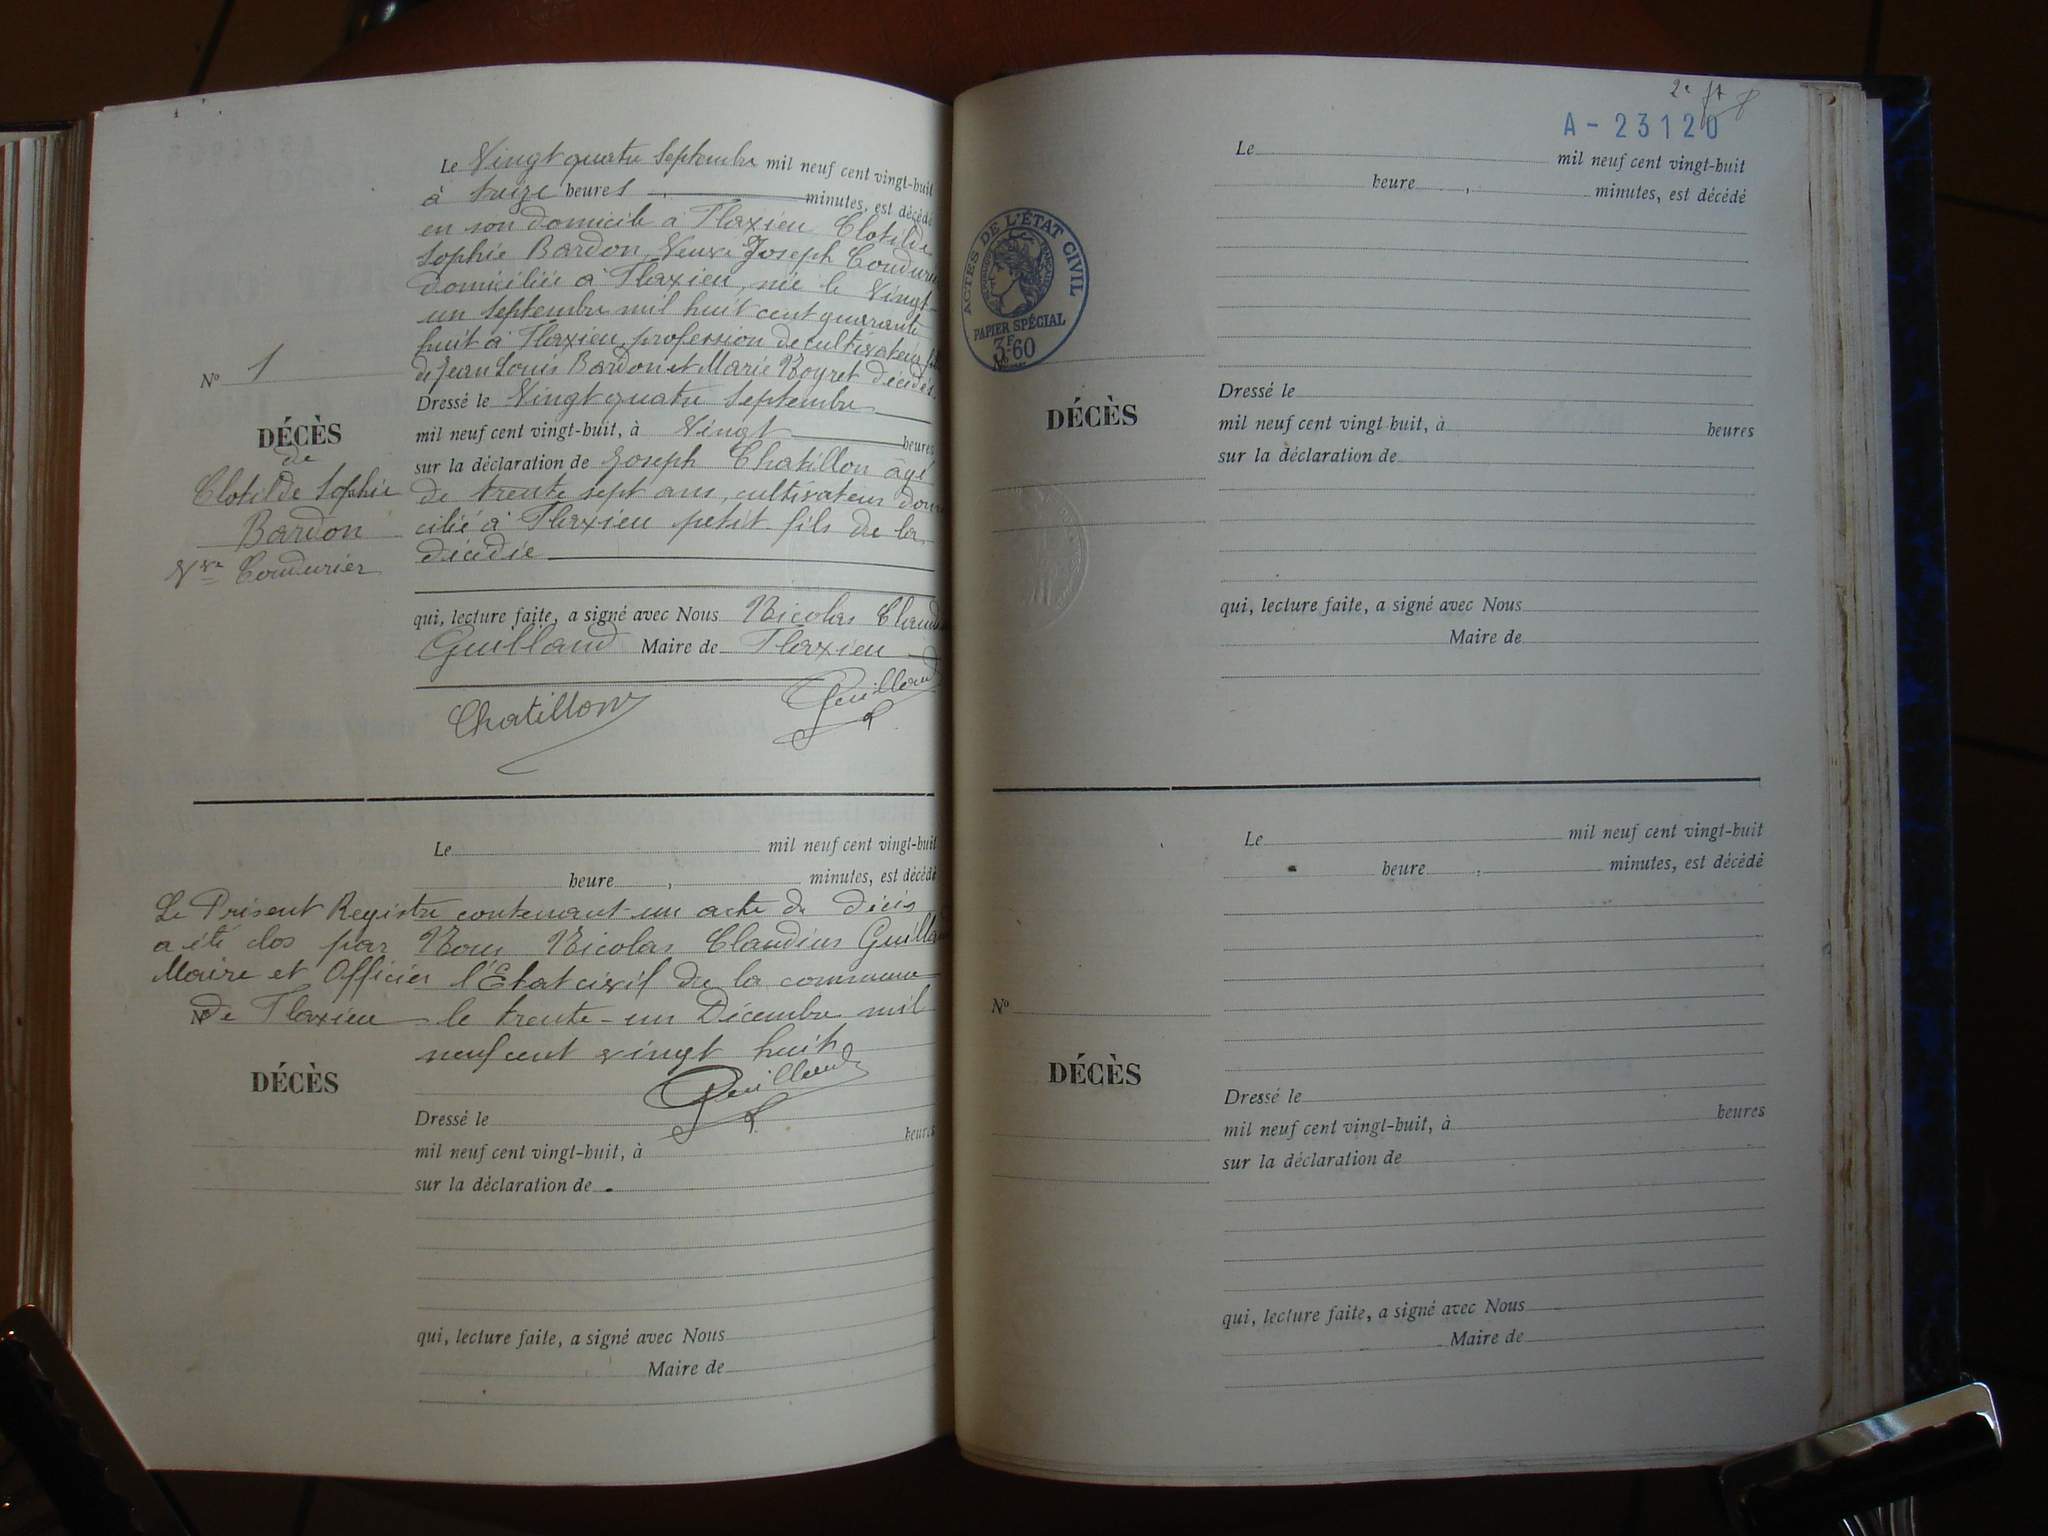 Le Vingt quatre Septembre mil neuf cent vingt-huit
à treize heures , minutes, est décédé
en son domicile à Flaxieu Clotilde
Sophie Bardon, Veuve Joseph Coudurier
domiciliée à Flaxieu, née le Vingt
un Septembre mil huit cent quarante
huit à Flaxieu, profession de cultivateur, fille
de Jean Louis Bardon et Marie Royret décédés.
Dressé le Vingt quatre Septembre
mil neuf cent vingt-huit, à Vingt heures
sur la déclaration de Joseph Chatillon âgé
de trente sept ans, cultivateur domi
cilié à Flaxieu petit fils de la
décédée
qui, lecture faite, a signé avec Nous Nicolas Claudius
Guilland Maire de Flaxieu
Chatillon
Guilland
No 1
DÉCÈS
de
Clotilde Sophie
Bardon
Vve Coudurier
Le mil neuf cent vingt-huit
heure , minutes, est décédé
Le Présent Registre contenant un acte de décès
a été clos par Nous Nicolas Claudius Guilland
Maire et Officier l'Etat civil de la commune
de Flaxieu le trente-un Décembre mil
neuf cent vingt huit
Guilland
No
DÉCÈS
Dressé le
mil neuf cent vingt-huit, à heures
sur la déclaration de
qui, lecture faite, a signé avec Nous
Maire de
2e
A-23120
Le mil neuf cent vingt-huit
heure , minutes, est décédé
ACTES DE L'ÉTAT CIVIL
PAPIER SPÉCIAL
3F60
No
DÉCÈS
Dressé le
mil neuf cent vingt huit, à heures
sur la déclaration de
qui, lecture faite, a signé avec Nous
Maire de
Le mil neuf cent vingt-huit
heure , minutes, est décédé
No
DÉCÈS
Dressé le
mil neuf cent vingt-huit, à heures
sur la déclaration de
qui, lecture faite, a signé avec Nous
Maire de